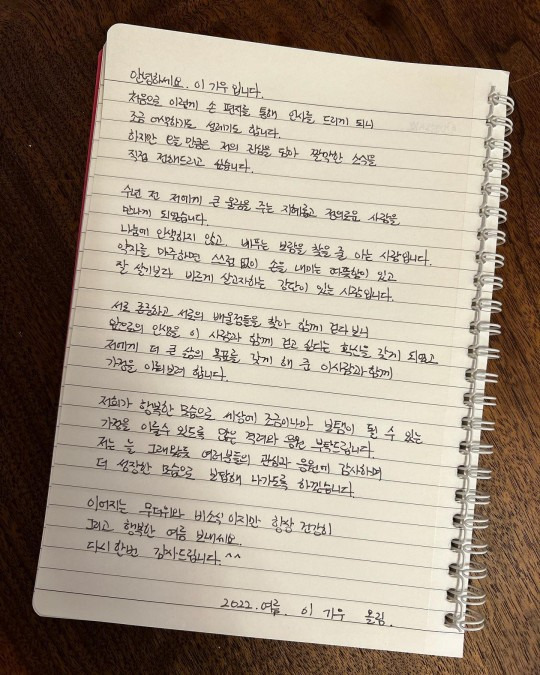 안녕하세요. 이 가우 입니다.
처음으로 이렇게 손 편지를 통해 인사를 드리게 되니
조금 어색하기도 설레기도 합니다.
하지만 오늘 만큼은 저의 진심을 담아 깜짝한 소식을
직접 전해드리고 싶습니다.
수년 전 저에게 큰 울림을 주는 지혜롭고 정의로운 사람을
만나게 되었습니다.
나눔에 인색하지 않고. 베푸는 보람을 찾을 줄 아는 사람입니다.
약자를 마주하면 스스럼 없이 손을 내미는 따뜻함이 있고
잘 살기보다 바르게 살고자하는 강단이 있는 사람입니다.
서로 존중하고 서로의 배울점들을 찾아 함께 걷다보니
앞으로의 인생을 이 사람과 함께 걷고 싶다는 확신을 갖게 되었고
저에게 더 큰 삶의 목표를 갖게 해 준 이사람과 함께
가정을 이뤄보려 합니다.
저희가 행복한 모습으로 세상에 조금이나마 보탬이 될 수 있는
가정을 이룰수 있도록 많은 격려와 응원 부탁드립니다.
저는 늘 그래왔듯 여러분들의 관심과 응원에 감사하며
더 성장한 모습으로 보답해 나가도록 하겠습니다.
이어지는 무더위와 비소식 이지만 항상 건강히
그리고 행복한 여름 보내세요.
다시 한번 감사드립니다.^^
2022. 여름. 이 가우 올림.